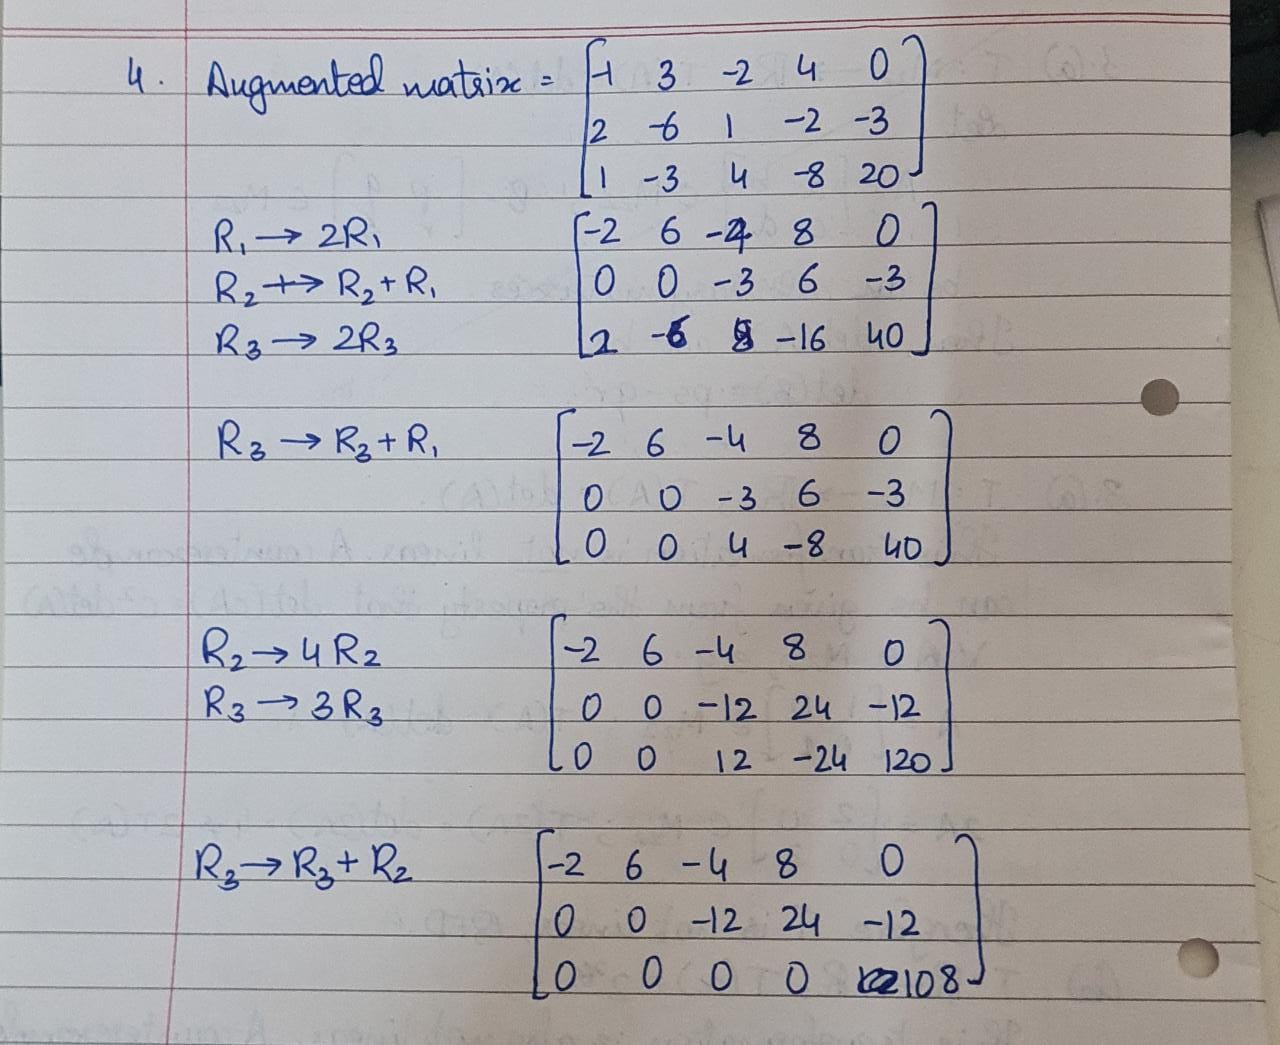 4. Augmented matrix = [-1 3 -2 4 0
2 -6 1 -2 -3
1 -3 4 -8 20]
R1 → 2R1 [-2 6 -4 8 0
R2 → R2 + R1 0 0 -3 6 -3
R3 → 2R3 2 -6 8 -16 40]
R3 → R3 + R1 [-2 6 -4 8 0
0 0 -3 6 -3
0 0 4 -8 40]
R2 → 4R2 [-2 6 -4 8 0
R3 → 3R3 0 0 -12 24 -12
0 0 12 -24 120]
R3 → R3 + R2 [-2 6 -4 8 0
0 0 -12 24 -12
0 0 0 0 108]